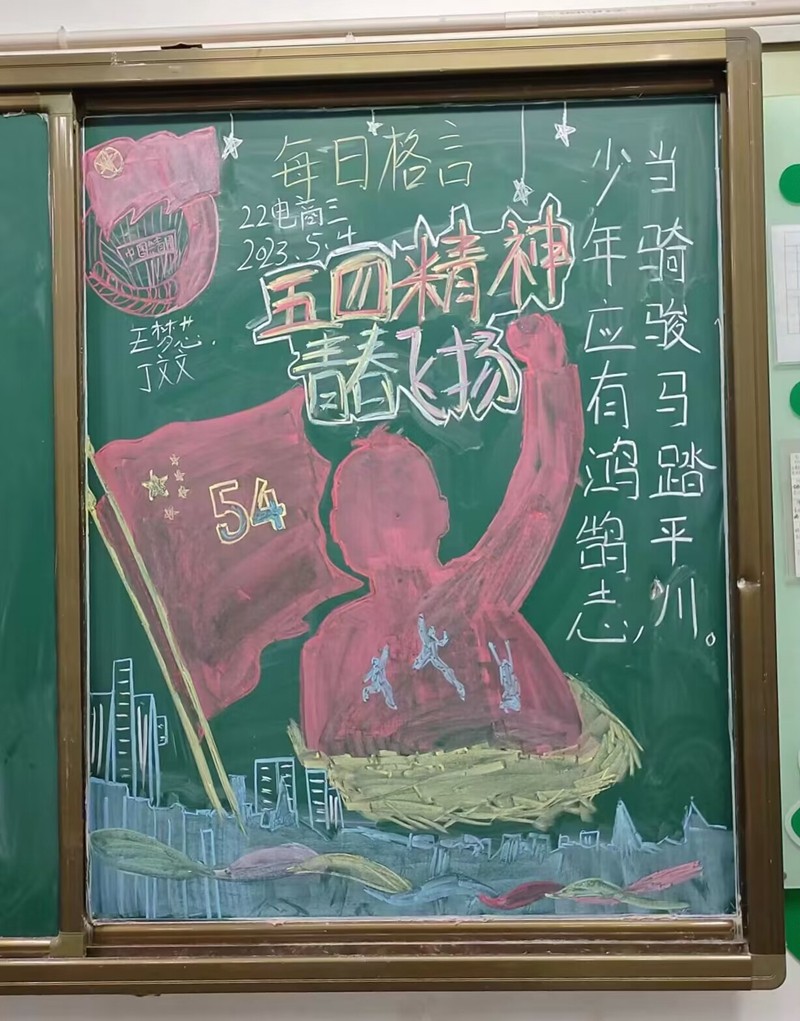 每日格言
22电商三
2023.5.4
五四精神
青春飞扬
王梦
丁文文
54
少年应有鸿鹄志,
当骑骏马踏平川。